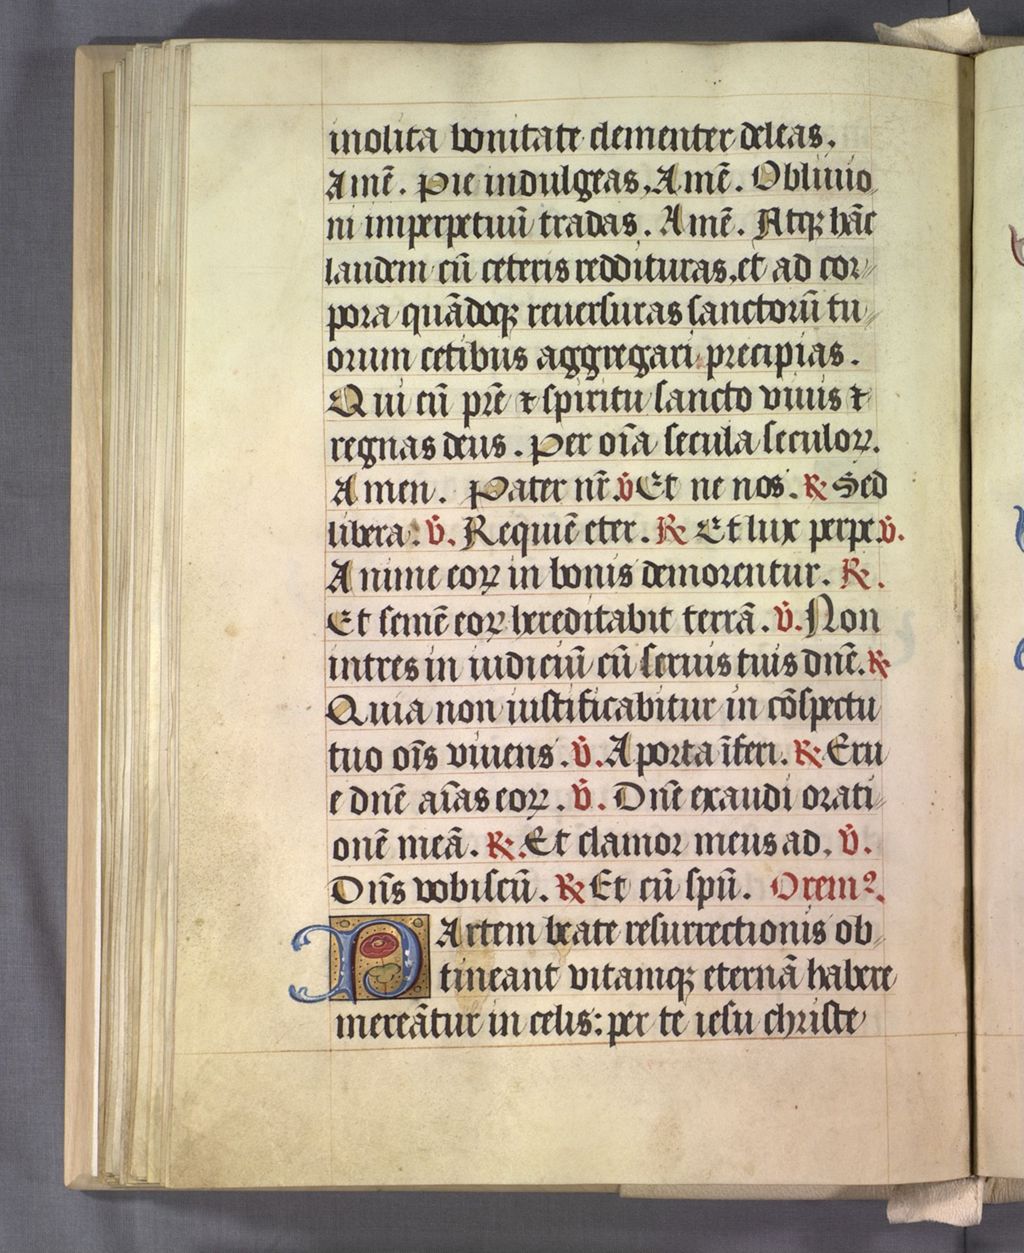 inolita bonitate clementer deleas.
Amē. Pie indulgeas, Amē. Obliuio
ni imperpetuū tradas. Amē. Atqꝫ hāc
laudem cū ceteris reddituras, et ad cor⸗
pora quādoqꝫ reuersuras sanctorū tu⸗
orum cetibus aggregari precipias.
Qui cū pr̄e ⁊ spiritu sancto viuis ⁊
regnas deus. Per oīa secula seculoꝝ.
Amen. Pater nr̄. ℣ Et ne nos. ℟ Sed
libera. ℣. Requiē eter. ℟ Et lux perpe. ℣.
Anime eoꝝ in bonis demorentur. ℟.
Et semē eoꝝ hereditabit terrā. ℣. Non
intres in iudiciū cū seruis tuis dn̄e. ℟
Quia non iustificabitur in cōspectu
tuo oīs viuens. ℣. A porta īferi. ℟. Eru
e dn̄e aīas eoꝝ. ℣. Dn̄e exaudi orati⸗
onē meā. ℟. Et clamor meus ad. ℣.
Dn̄s vobiscū. ℟ Et cū spū. Orem⁹.
PArtem beate resurrectionis ob⸗
tineant vitamqꝫ eternā habere
mereātur in celis: per te iesu christe